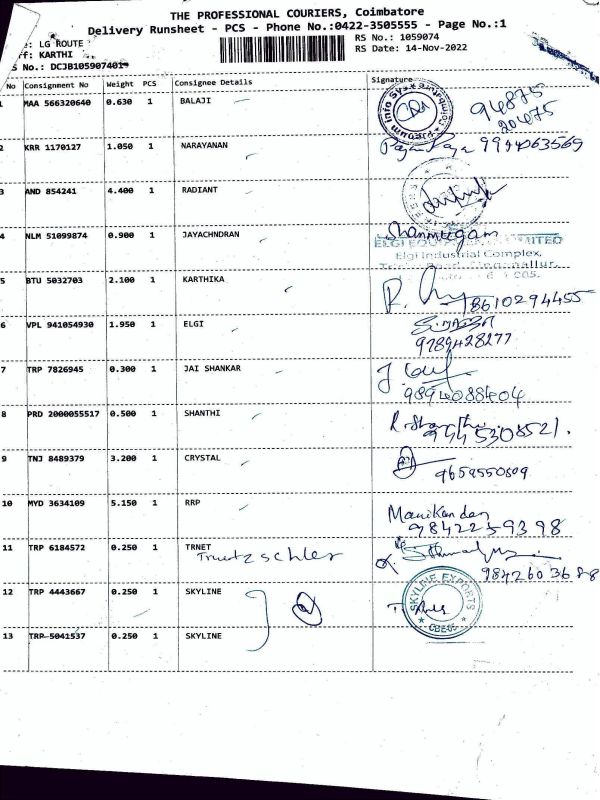 THE PROFESSIONAL COURIERS, Coimbatore
Delivery Runsheet - PCS - Phone No.:0422-3505555 - Page No.:1
: LG ROUTE RS No.: 1059074
f: KARTHI RS Date: 14-Nov-2022
S No.: DCJB105907401
No Consignment No Weight PCS Consignee Details Signature
1 MAA 566320640 0.630 1 BALAJI 94875
20475
2 KRR 1170127 1.050 1 NARAYANAN 9994263569
3 AND 854241 4.400 1 RADIANT
4 NLM 51099874 0.900 1 JAYACHNDRAN Shanmugam
Elgi Industrial Complex,
5 BTU 5032703 2.100 1 KARTHIKA 8610294455
6 VPL 941054930 1.950 1 ELGI
9789428277
7 TRP 7826945 0.300 1 JAI SHANKAR
9894088404
8 PRD 2000055517 0.500 1 SHANTHI
9445308521.
9 TNJ 8489379 3.200 1 CRYSTAL 9659550809
10 MYD 3634109 5.150 1 RRP Manikandan
9842259398
11 TRP 6184572 0.250 1 TRNET
Truetzschler
9842603688
12 TRP 4443667 0.250 1 SKYLINE SKYLINE EXPORTS
CBE-05
13 TRP 5041537 0.250 1 SKYLINE